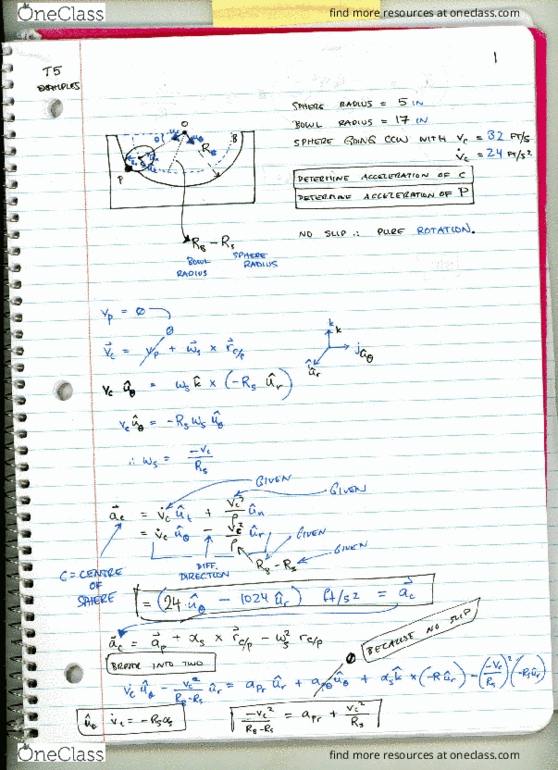 OneClass
find more resources at oneclass.com
1
T5
EXAMPLES
SPHERE RADIUS = 5 IN
BOWL RADIUS = 17 IN
SPHERE GOING CCW WITH v_c = 32 FT/S
v̇_c = 24 FT/S²
DETERMINE ACCELERATION OF C
DETERMINE ACCELERATION OF P
NO SLIP ∴ PURE ROTATION.
O
R
B
P
R_B - R_S
BOWL RADIUS
SPHERE RADIUS
v_P = Ø
Ø
v⃗_c = v_P + ω⃗_s × r⃗_c/p
k
j û_θ
û_r
v_c û_θ = ω_s k̂ × (-R_s û_r)
v_c û_θ = -R_s ω_s û_θ
∴ ω_s = -v_c / R_s
GIVEN
GIVEN
a⃗_c = v̇_c û_t + v_c²/ρ û_n
= v̇_c û_θ - v_c²/ρ û_r
GIVEN
GIVEN
R_B - R_S
DIFF. DIRECTION
C = CENTRE OF SPHERE
= (24 û_θ - 1024 û_r) ft/s² = a⃗_c
a⃗_c = a⃗_p + α_s × r⃗_c/p - ω_s² r_c/p
BECAUSE NO SLIP
BREAK INTO TWO
Ø
v̇_c û_θ - v_c²/(R_B-R_S) û_r = a_Pr û_r + a_Pθ û_θ + α_s k̂ × (-R û_r) - (-v_c/R_s)² (-R_s û_r)
û_θ v̇_t = -R_s α_s
-v_c²/(R_B-R_S) = a_Pr + v_c²/R_s
OneClass
find more resources at oneclass.com